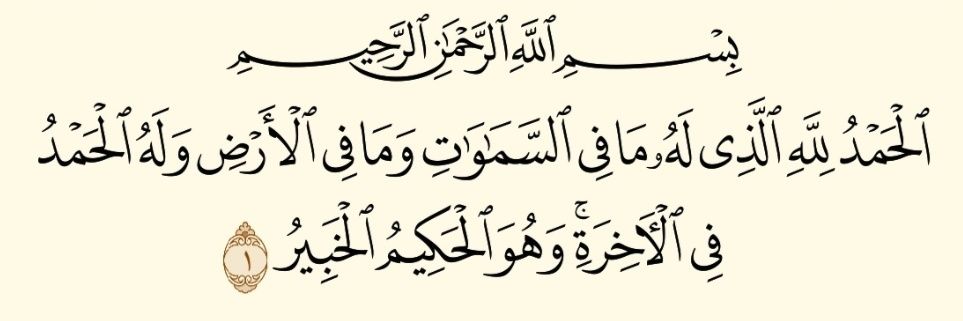 بِسْمِ ٱللَّهِ ٱلرَّحْمَٰنِ ٱلرَّحِيمِ
ٱلْحَمْدُ لِلَّهِ ٱلَّذِى لَهُۥ مَا فِى ٱلسَّمَٰوَٰتِ وَمَا فِى ٱلْأَرْضِ وَلَهُ ٱلْحَمْدُ
فِى ٱلْـَٔاخِرَةِ ۚ وَهُوَ ٱلْحَكِيمُ ٱلْخَبِيرُ ١